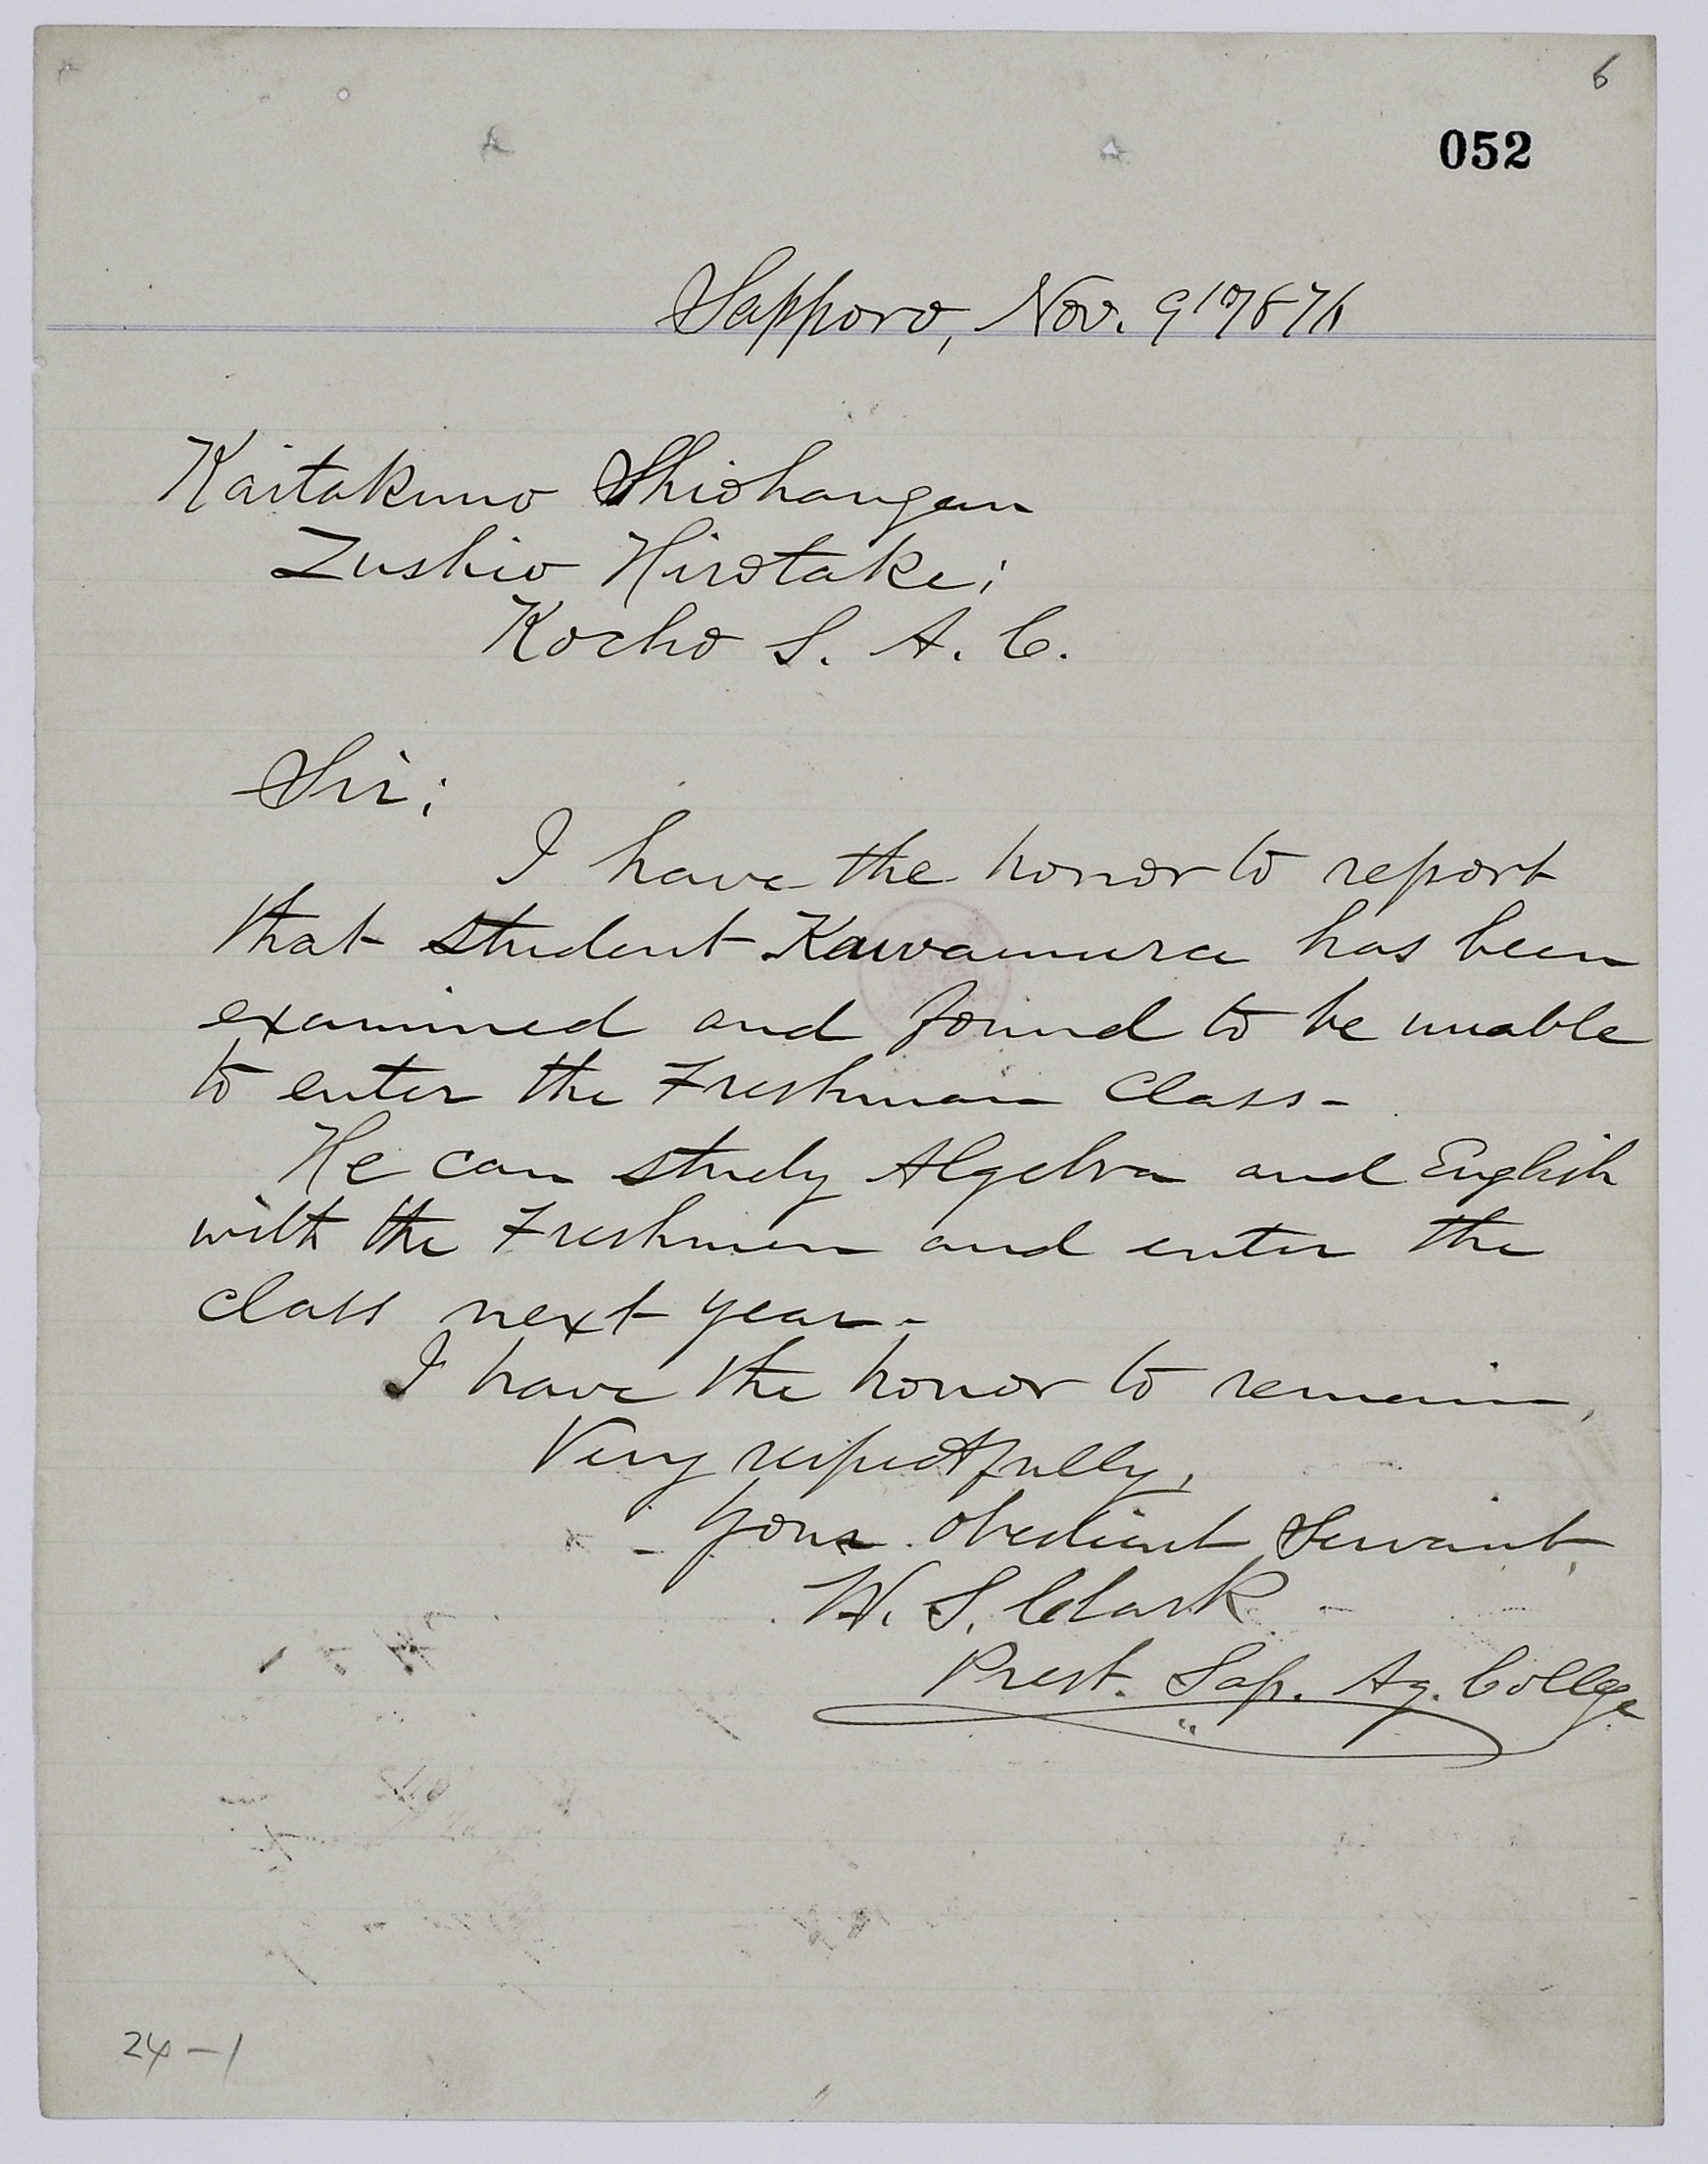 6
052
Sapporo, Nov. 9th 1876
Kaitakuno Shiohangan
Zushio Hirotake;
Kocho S. A. C.
Sir;
I have the honor to report
that student Kawamura has been
examined and found to be unable
to enter the Freshman Class.
He can study Algebra and English
with the Freshmen and enter the
class next year.
I have the honor to remain,
Very respectfully,
Your obedient Servant,
W. S. Clark
Prest. Sap. Ag. College
24-1